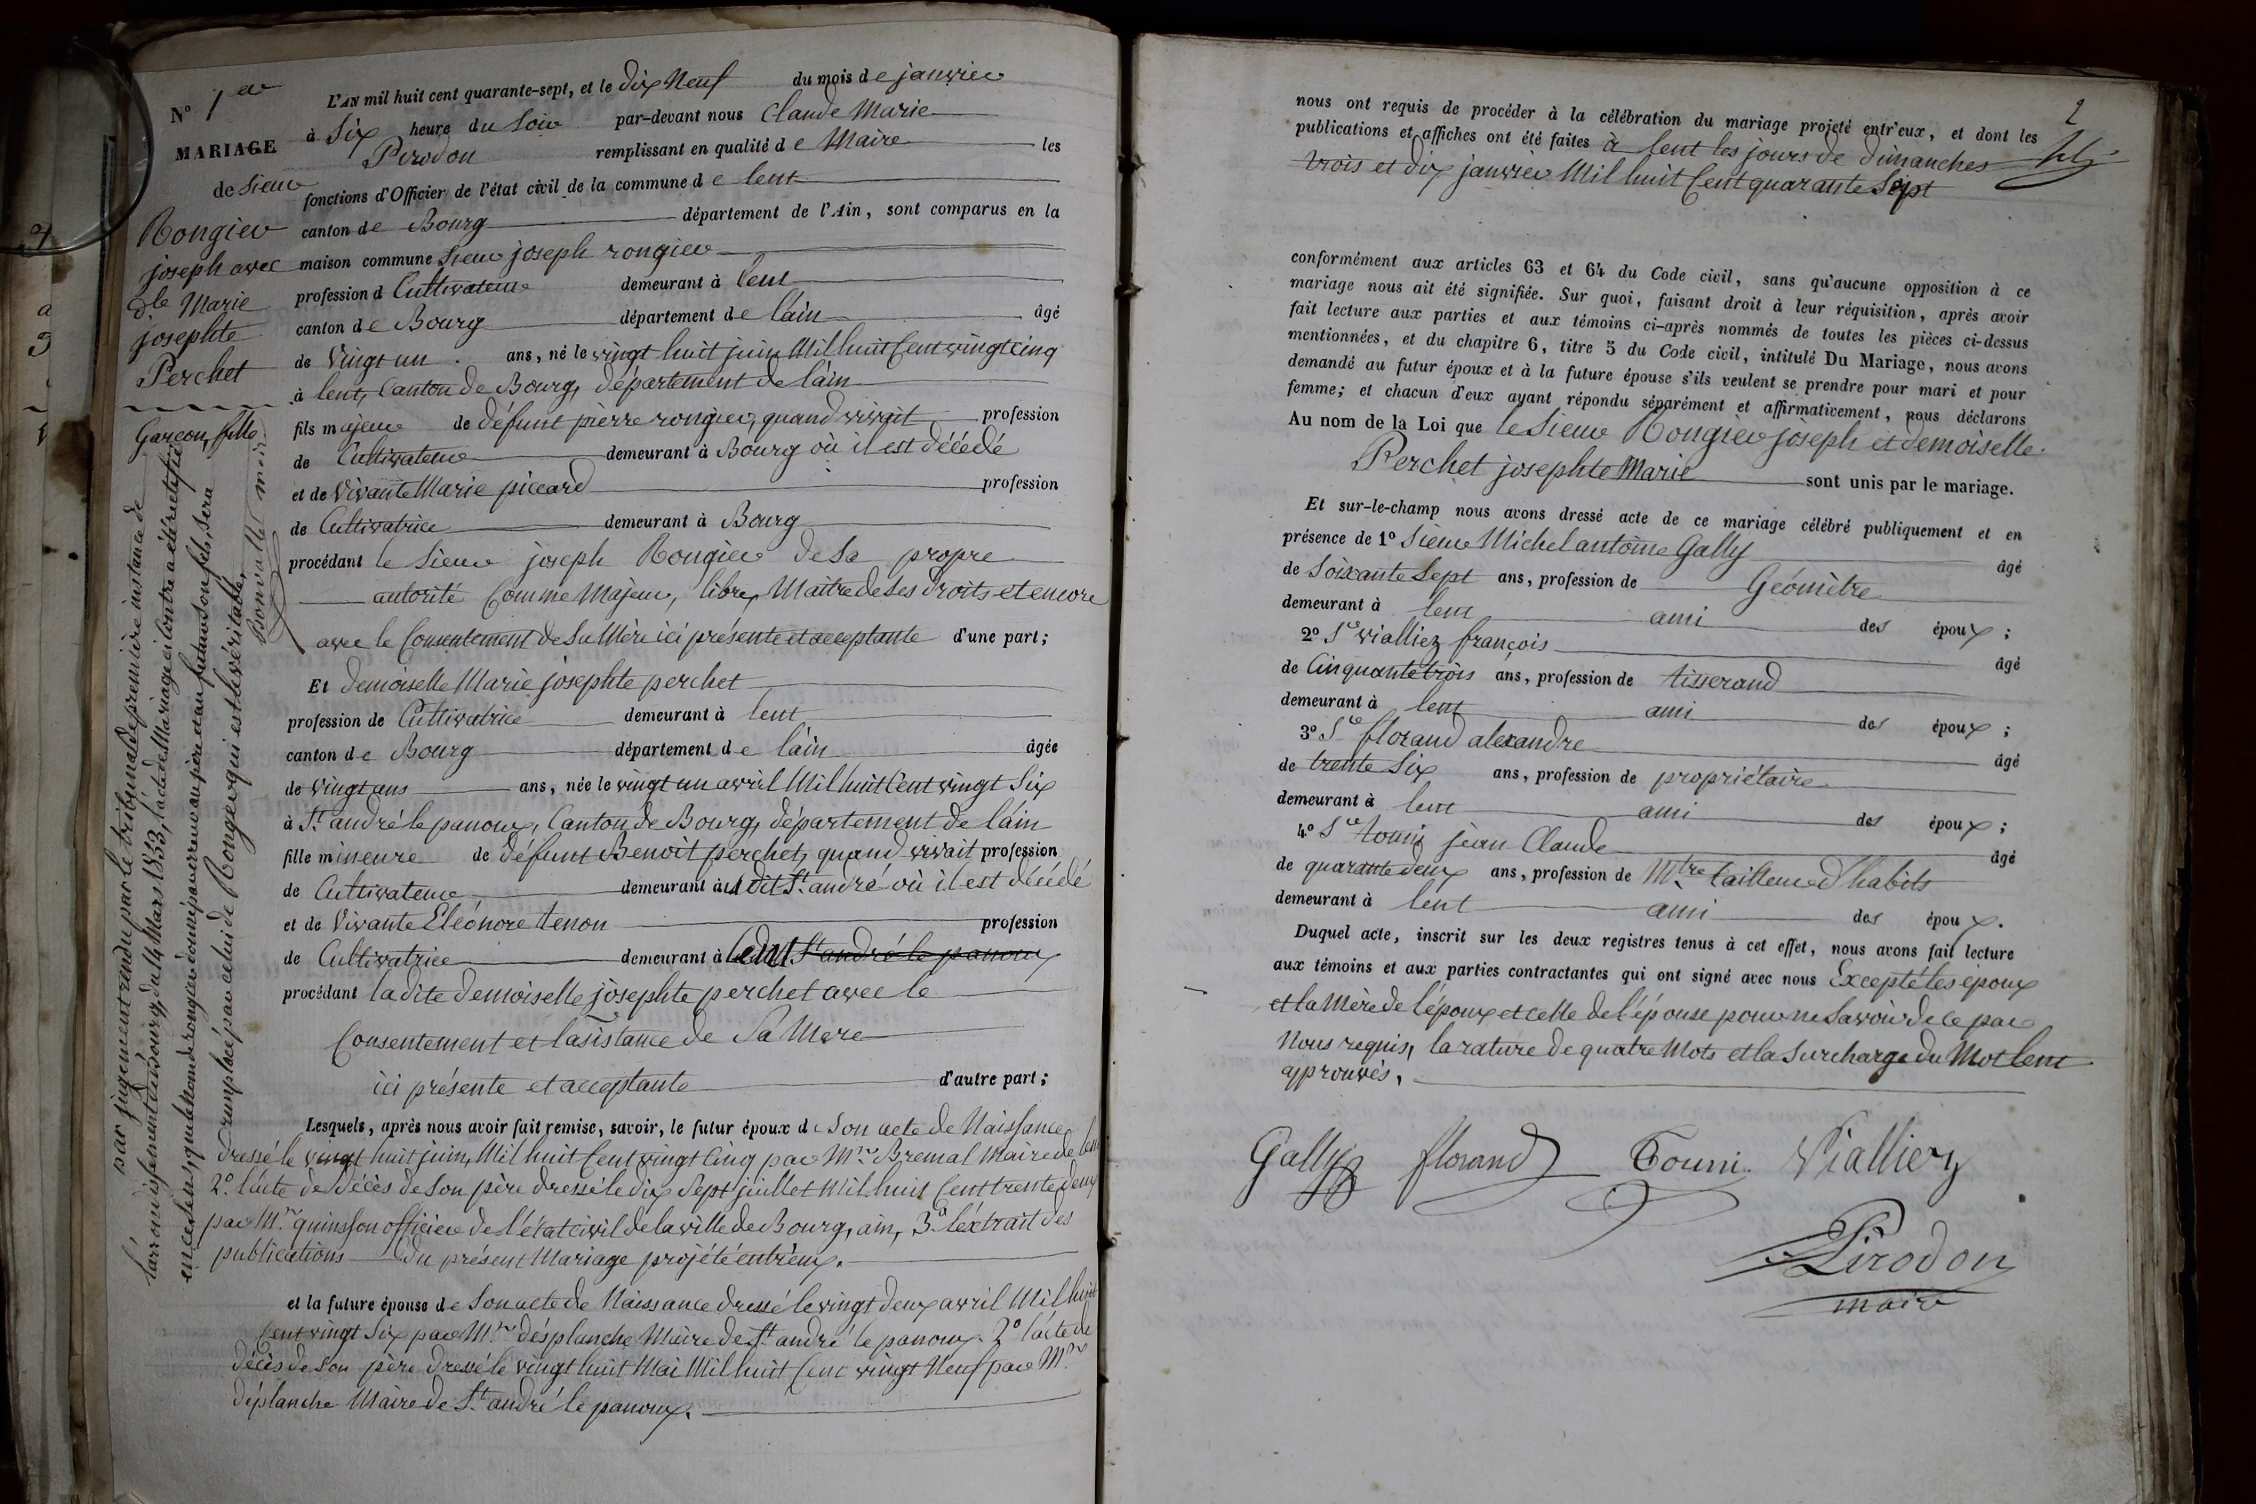 N° 1er
MARIAGE
de Sieur
Rongier
joseph avec
dlle Marie
josephte
Perchet
Garcon, fille
par jugement rendu par le tribunal de première instance de
l'arrondissement de Bourg, du 14 Mars 1853, l'acte de Mariage ci contre a été rectifié
en ce sens, que le nom de rongier donné par erreur au père et au futur son fils, sera
remplacé par celui de Ronger qui est le véritable,
L'AN mil huit cent quarante-sept, et le dix Neuf du mois de janvier
à Six heure du Soir par-devant nous Claude Marie
Pirodon remplissant en qualité de Maire les
fonctions d'Officier de l'état civil de la commune de lent
canton de Bourg département de l'Ain, sont comparus en la
maison commune Sieur joseph rongier
profession d Cultivateur demeurant à lent
canton de Bourg département de l'ain âgé
de Vingt un ans, né le vingt huit juin Mil huit Cent vingt Cinq
à lent, Canton de Bourg, département de l'ain
fils majeur de défunt pierre rongier, quand vivait profession
de Cultivateur demeurant à Bourg où il est décédé
et de Vivante Marie piccard profession
de Cultivatrice demeurant à Bourg
procédant le Sieur joseph Rongier de Sa propre
autorité Comme Majeur, libre, Maitre de Ses droits et encore
avec le Consentement de Sa Mère ici présente et acceptante d'une part;
Et demoiselle Marie josephte perchet
profession de Cultivatrice demeurant à lent
canton de Bourg département de l'ain âgée
de Vingt ans ans, née le vingt un avril Mil huit Cent vingt Six
à St. andré le panoux, Canton de Bourg, département de l'ain
fille mineure de défunt Benoit perchet, quand vivait profession
de Cultivateur demeurant au dit St. andré où il est décédé
et de Vivante Eléonore tenon profession
de Cultivatrice demeurant à lent St andré le panoux
procédant la dite demoiselle josephte perchet avec le
Consentement et l'asistance de Sa Mere
ici présente et acceptante d'autre part;
Lesquels, après nous avoir fait remise, savoir, le futur époux de Son acte de Naissance
dressé le vingt huit juin, Mil huit Cent vingt Cinq par Mr. Bremal Maire de lent
2°. l'acte de décès de Son père dressé le dix Sept juillet Mil huit Cent trente deux
par Mr. quinsson officier de l'état civil de la ville de Bourg, ain, 3°. l'éxtrait des
publications du présent Mariage projété entr'eux.
et la future épouse de Son acte de Naissance dressé le vingt deux avril Mil huit
Cent vingt Six par Mr. désplanche Maire de St. andré le panoux. 2° l'acte de
décès de Son père dressé le vingt huit Mai Mil huit Cent vingt Neuf par Mr.
déplanche Maire de St. andré le panoux.
2
nous ont requis de procéder à la célébration du mariage projeté entr'eux, et dont les
publications et affiches ont été faites à lent les jours de dimanches
trois et dix janvier Mil huit Cent quarante Sept
conformément aux articles 63 et 64 du Code civil, sans qu'aucune opposition à ce
mariage nous ait été signifiée. Sur quoi, faisant droit à leur réquisition, après avoir
fait lecture aux parties et aux témoins ci-après nommés de toutes les pièces ci-dessus
mentionnées, et du chapitre 6, titre 5 du Code civil, intitulé Du Mariage, nous avons
demandé au futur époux et à la future épouse s'ils veulent se prendre pour mari et pour
femme; et chacun d'eux ayant répondu séparément et affirmativement, nous déclarons
Au nom de la Loi que le Sieur Rongier joseph et demoiselle
Perchet josephte Marie sont unis par le mariage.
Et sur-le-champ nous avons dressé acte de ce mariage célébré publiquement et en
présence de 1° Sieur Michel antoine Gally âgé
de Soixante Sept ans, profession de Géomètre
demeurant à lent ami des époux;
2° Sr vialliez françois âgé
de Cinquante trois ans, profession de tisserand
demeurant à lent ami des époux;
3° Sr florand alexandre âgé
de trente Six ans, profession de propriétaire
demeurant à lent ami des époux;
4° Sr touni jean Claude âgé
de quarante deux ans, profession de Mtre tailleur d'habits
demeurant à lent ami des époux.
Duquel acte, inscrit sur les deux registres tenus à cet effet, nous avons fait lecture
aux témoins et aux parties contractantes qui ont signé avec nous Excepté les époux
et la Mère de l'époux et celle de l'épouse pour ne Savoir de ce par
Nous requis, la rature de quatre Mots et la Surcharge du Mot lent
approuvés.
Gally florand Touni Vialliez
Pirodon
maire